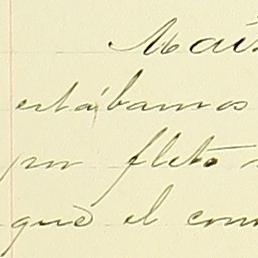 Maís
estábamos
por flete
que el com